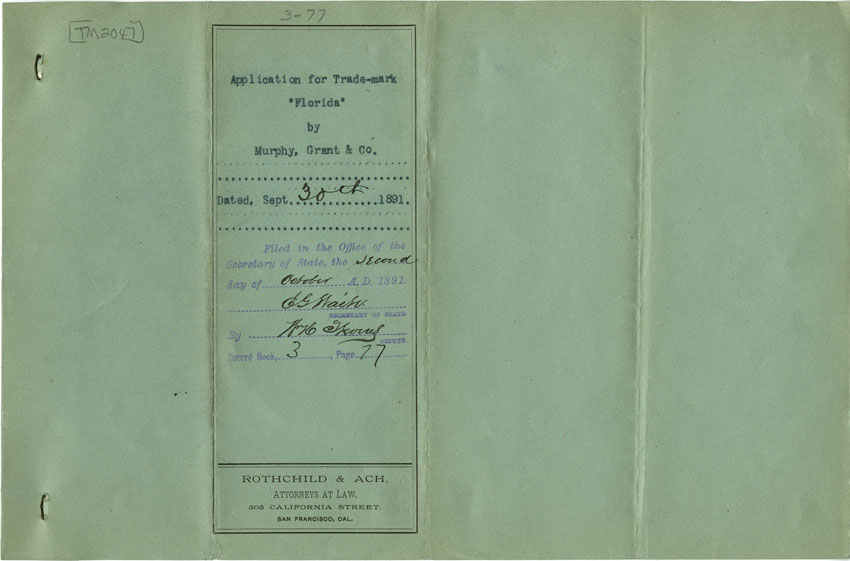 [TM2047]
3-77
Application for Trade-mark
"Florida"
by
Murphy, Grant & Co.
Dated, Sept. 30th 1891.
Filed in the Office of the
Secretary of State, the second
day of October A.D. 1891.
E G Waite
SECRETARY OF STATE.
By W H
DEPUTY.
Record Book, 3, Page 77
ROTHCHILD & ACH,
ATTORNEYS AT LAW,
303 CALIFORNIA STREET,
SAN FRANCISCO, CAL.